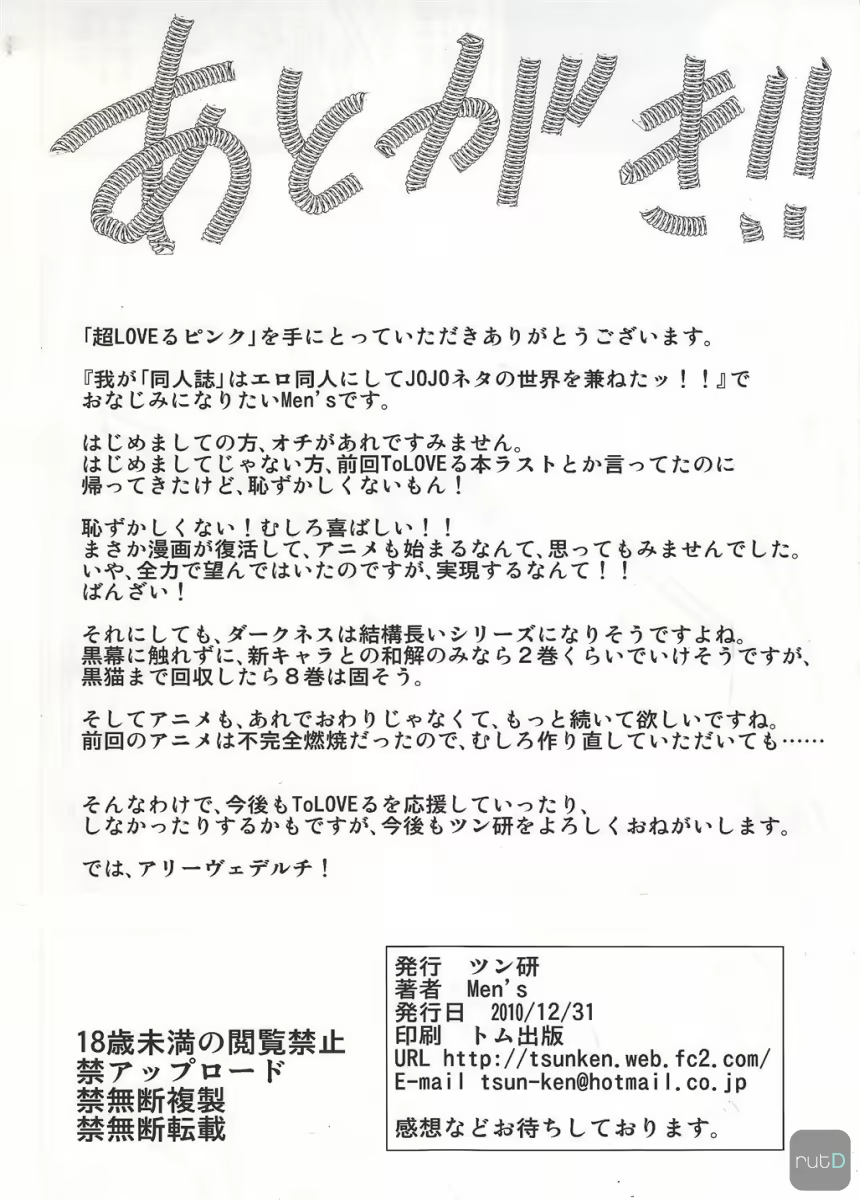 あとがき!!
「超LOVEるピンク」を手にとっていただきありがとうございます。
『我が「同人誌」はエロ同人にしてJOJOネタの世界を兼ねたッ！！』で
おなじみになりたいMen'sです。
はじめましての方、オチがあれですみません。
はじめましてじゃない方、前回ToLOVEる本ラストとか言ってたのに
帰ってきたけど、恥ずかしくないもん！
恥ずかしくない！むしろ喜ばしい！！
まさか漫画が復活して、アニメも始まるなんて、思ってもみませんでした。
いや、全力で望んではいたのですが、実現するなんて！！
ばんざい！
それにしても、ダークネスは結構長いシリーズになりそうですよね。
黒幕に触れずに、新キャラとの和解のみなら２巻くらいでいけそうですが、
黒猫まで回収したら８巻は固そう。
そしてアニメも、あれでおわりじゃなくて、もっと続いて欲しいですね。
前回のアニメは不完全燃焼だったので、むしろ作り直していただいても……
そんなわけで、今後もToLOVEるを応援していったり、
しなかったりするかもですが、今後もツン研をよろしくおねがいします。
では、アリーヴェデルチ！
18歳未満の閲覧禁止
禁アップロード
禁無断複製
禁無断転載
発行　ツン研
著者　Men's
発行日　2010/12/31
印刷　トム出版
URL http://tsunken.web.fc2.com/
E-mail tsun-ken@hotmail.co.jp
感想などお待ちしております。
rutD